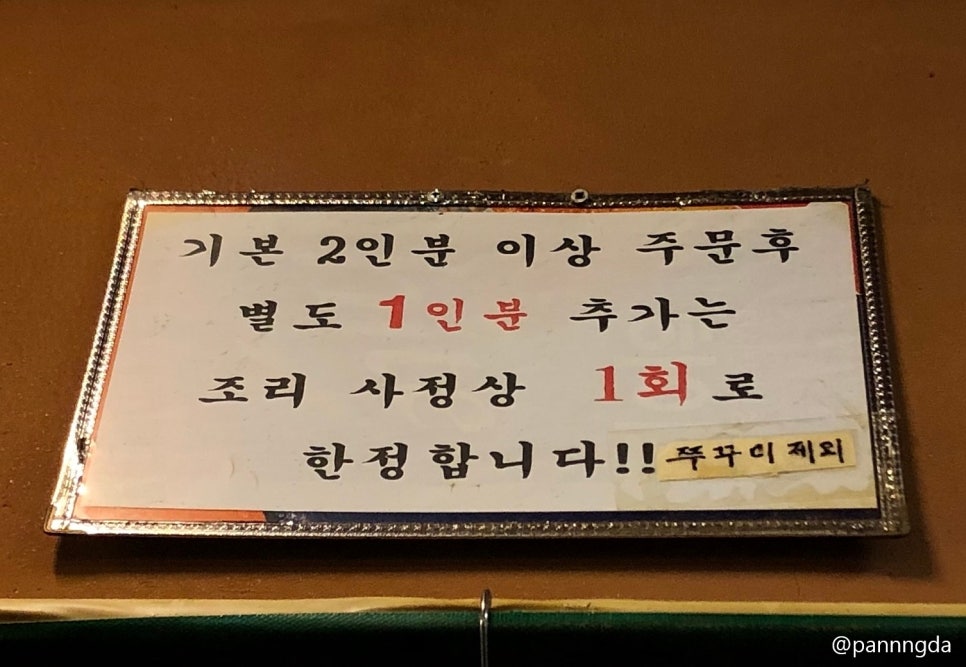 기본 2인분 이상 주문후
별도 1인분 추가는
조리 사정상 1회로
한정합니다!! 쭈꾸미제외
@pannngda